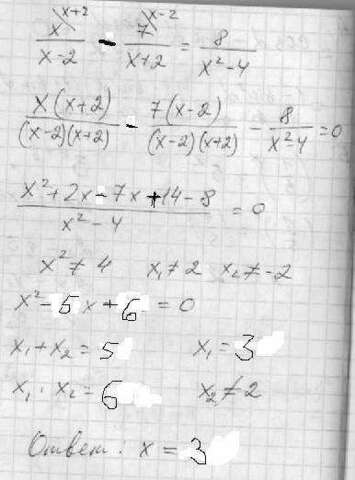 x^(x+2) / (x-2) - 7^(x-2) / (x+2) = 8 / (x²-4)
x(x+2) / ((x-2)(x+2)) - 7(x-2) / ((x-2)(x+2)) - 8 / (x²-4) = 0
(x²+2x-7x+14-8) / (x²-4) = 0
x² ≠ 4 x₁ ≠ 2 x₂ ≠ -2
x²-5x+6 = 0
x₁+x₂ = 5 x₁ = 3
x₁·x₂ = 6 x₂ ≠ 2
Ответ: x = 3